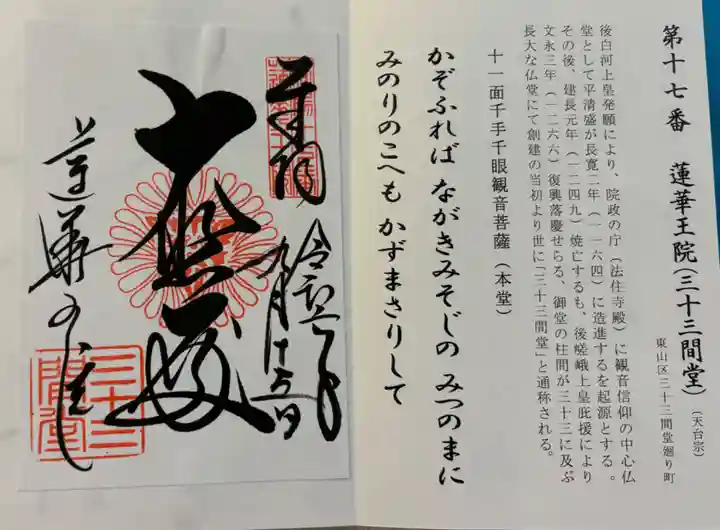 第十七番 蓮華王院(三十三間堂)
(天台宗)
東山区三十三間堂廻り町
後白河上皇発願により、院政の庁(法住寺殿)に観音信仰の中心仏
堂として平清盛が長寛二年(一一六四)に造進するを起源とする。
その後、建長元年(一二四九)焼亡するも、後嵯峨上皇庇援により
文永三年(一二六六)復興落慶せらる、御堂の柱間が三十三に及ぶ
長大な仏堂にて創建の当初より世に「三十三間堂」と通称される。
十一面千手千眼観音菩薩(本堂)
かぞふれば ながきみそじの みつのまに
みのりのこへも かずまさりして
奉拝
大悲殿
蓮華王院
三十三
間堂